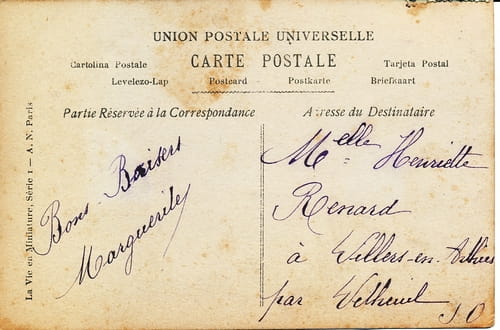 UNION POSTALE UNIVERSELLE
CARTE POSTALE
Cartolina Postale
Tarjeta Postal
Levelezo-Lap
Postcard
Postkarte
Briefkaart
Partie Réservée à la Correspondance
Adresse du Destinataire
Bons Baisers
Marguerite
Melle Henriette
Renard
à Villers-en-Arthies
par
S O
La Vie en Miniature, Série 1 — A. N. Paris